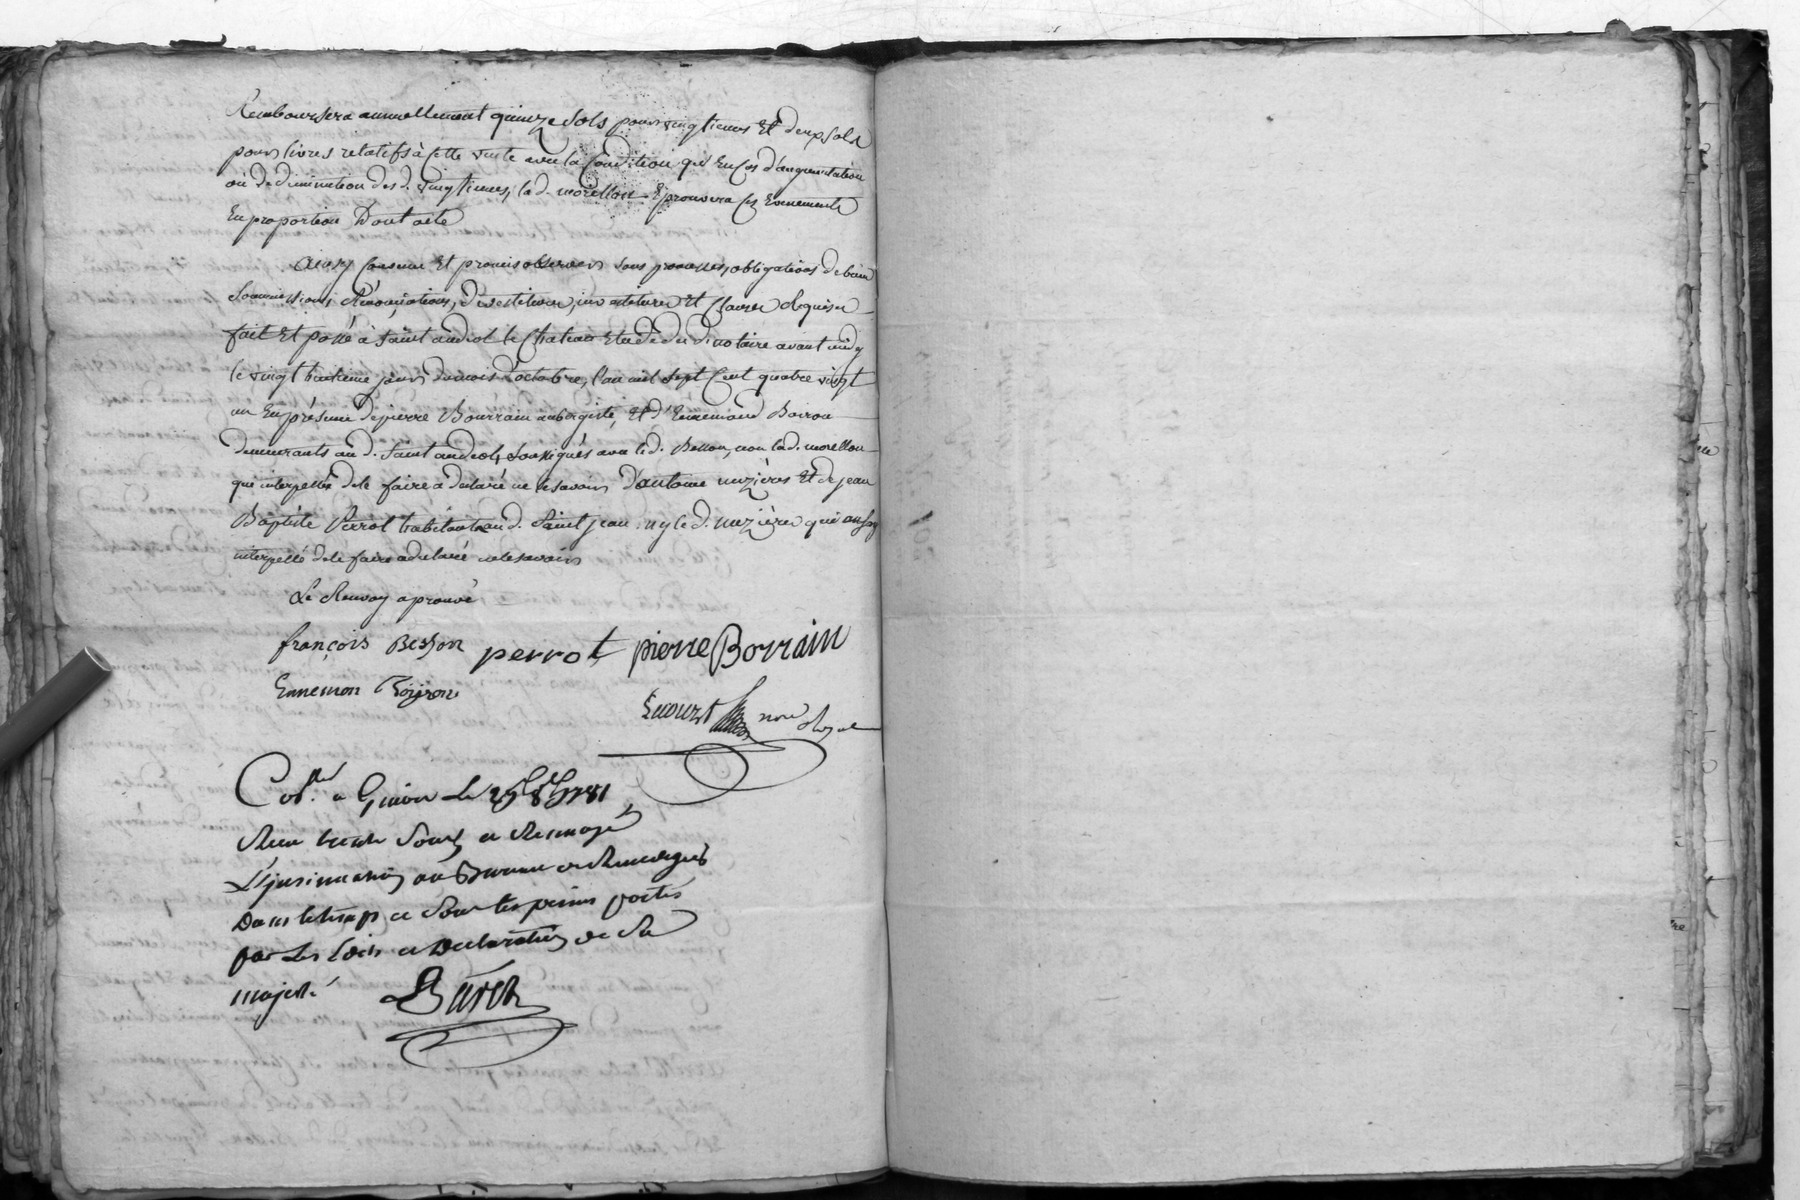 Remboursera annuellement quinze sols pour vingtiemes Et deux sols
pour livres relatifs à cette vente avec la Condition qu'En Cas d'augmentation
ou de diminution des d. vingtiemes, la d. morellon Eprouvera ces Evenements
En proportion Dont acte
Ainsy Convenu Et promis observer sous peines, obligations de biens
Soumissions, Rénonciations, devestiture, investiture Et Clauses Requises
fait Et passé à Saint andéol le Chateau Etude du d. notaire avant midy
le vingt huitieme jour du mois d'octobre, l'an mil Sept Cent quatre vingt
un En présence de pierre Bourrain aubergiste, Et d'Ennemond Boiron
demeurants au d. Saint andeol, Soussignés avec le d. Besson, non la d. morellon
qui interpellée de le faire a déclaré ne le savoir d'antoine mezières Et de jean
Baptiste Perrot habitants au d. Saint jean ny le d. mezières qui aussy
interpellé de le faire a declaré ne le savoir
Le Renvoy aprouvé
françois Besson perrot pierre Borrain
Ennemon Boyron
nore Royal
Colle. a Givors Le 29 8bre 1781
Reçu trente Sous et Renvoyé
L'jnsinuation au Bureau de
Dans le temps et Sous les peines portés
par Les Edits et Declarations de Sa
majesté